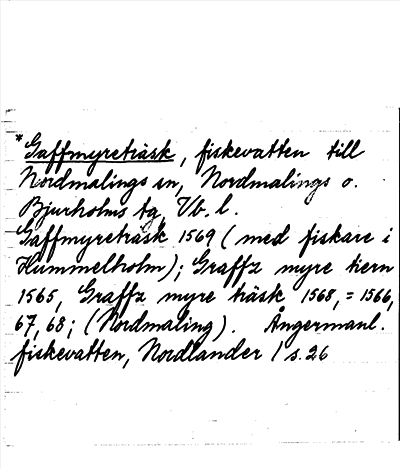 *Gaffmyreträsk, fiskevatten till
Nordmalings sn, Nordmalings o.
Bjurholms tg, Vb. l.
Gaffmyreträsk 1569 (med fiskare i
Hummelholm); Graffz myre tiern
1565, Graffz myre träsk 1568, = 1566,
67, 68; (Nordmaling). Ångermanl.
fiskevatten, Nordlander I s. 26